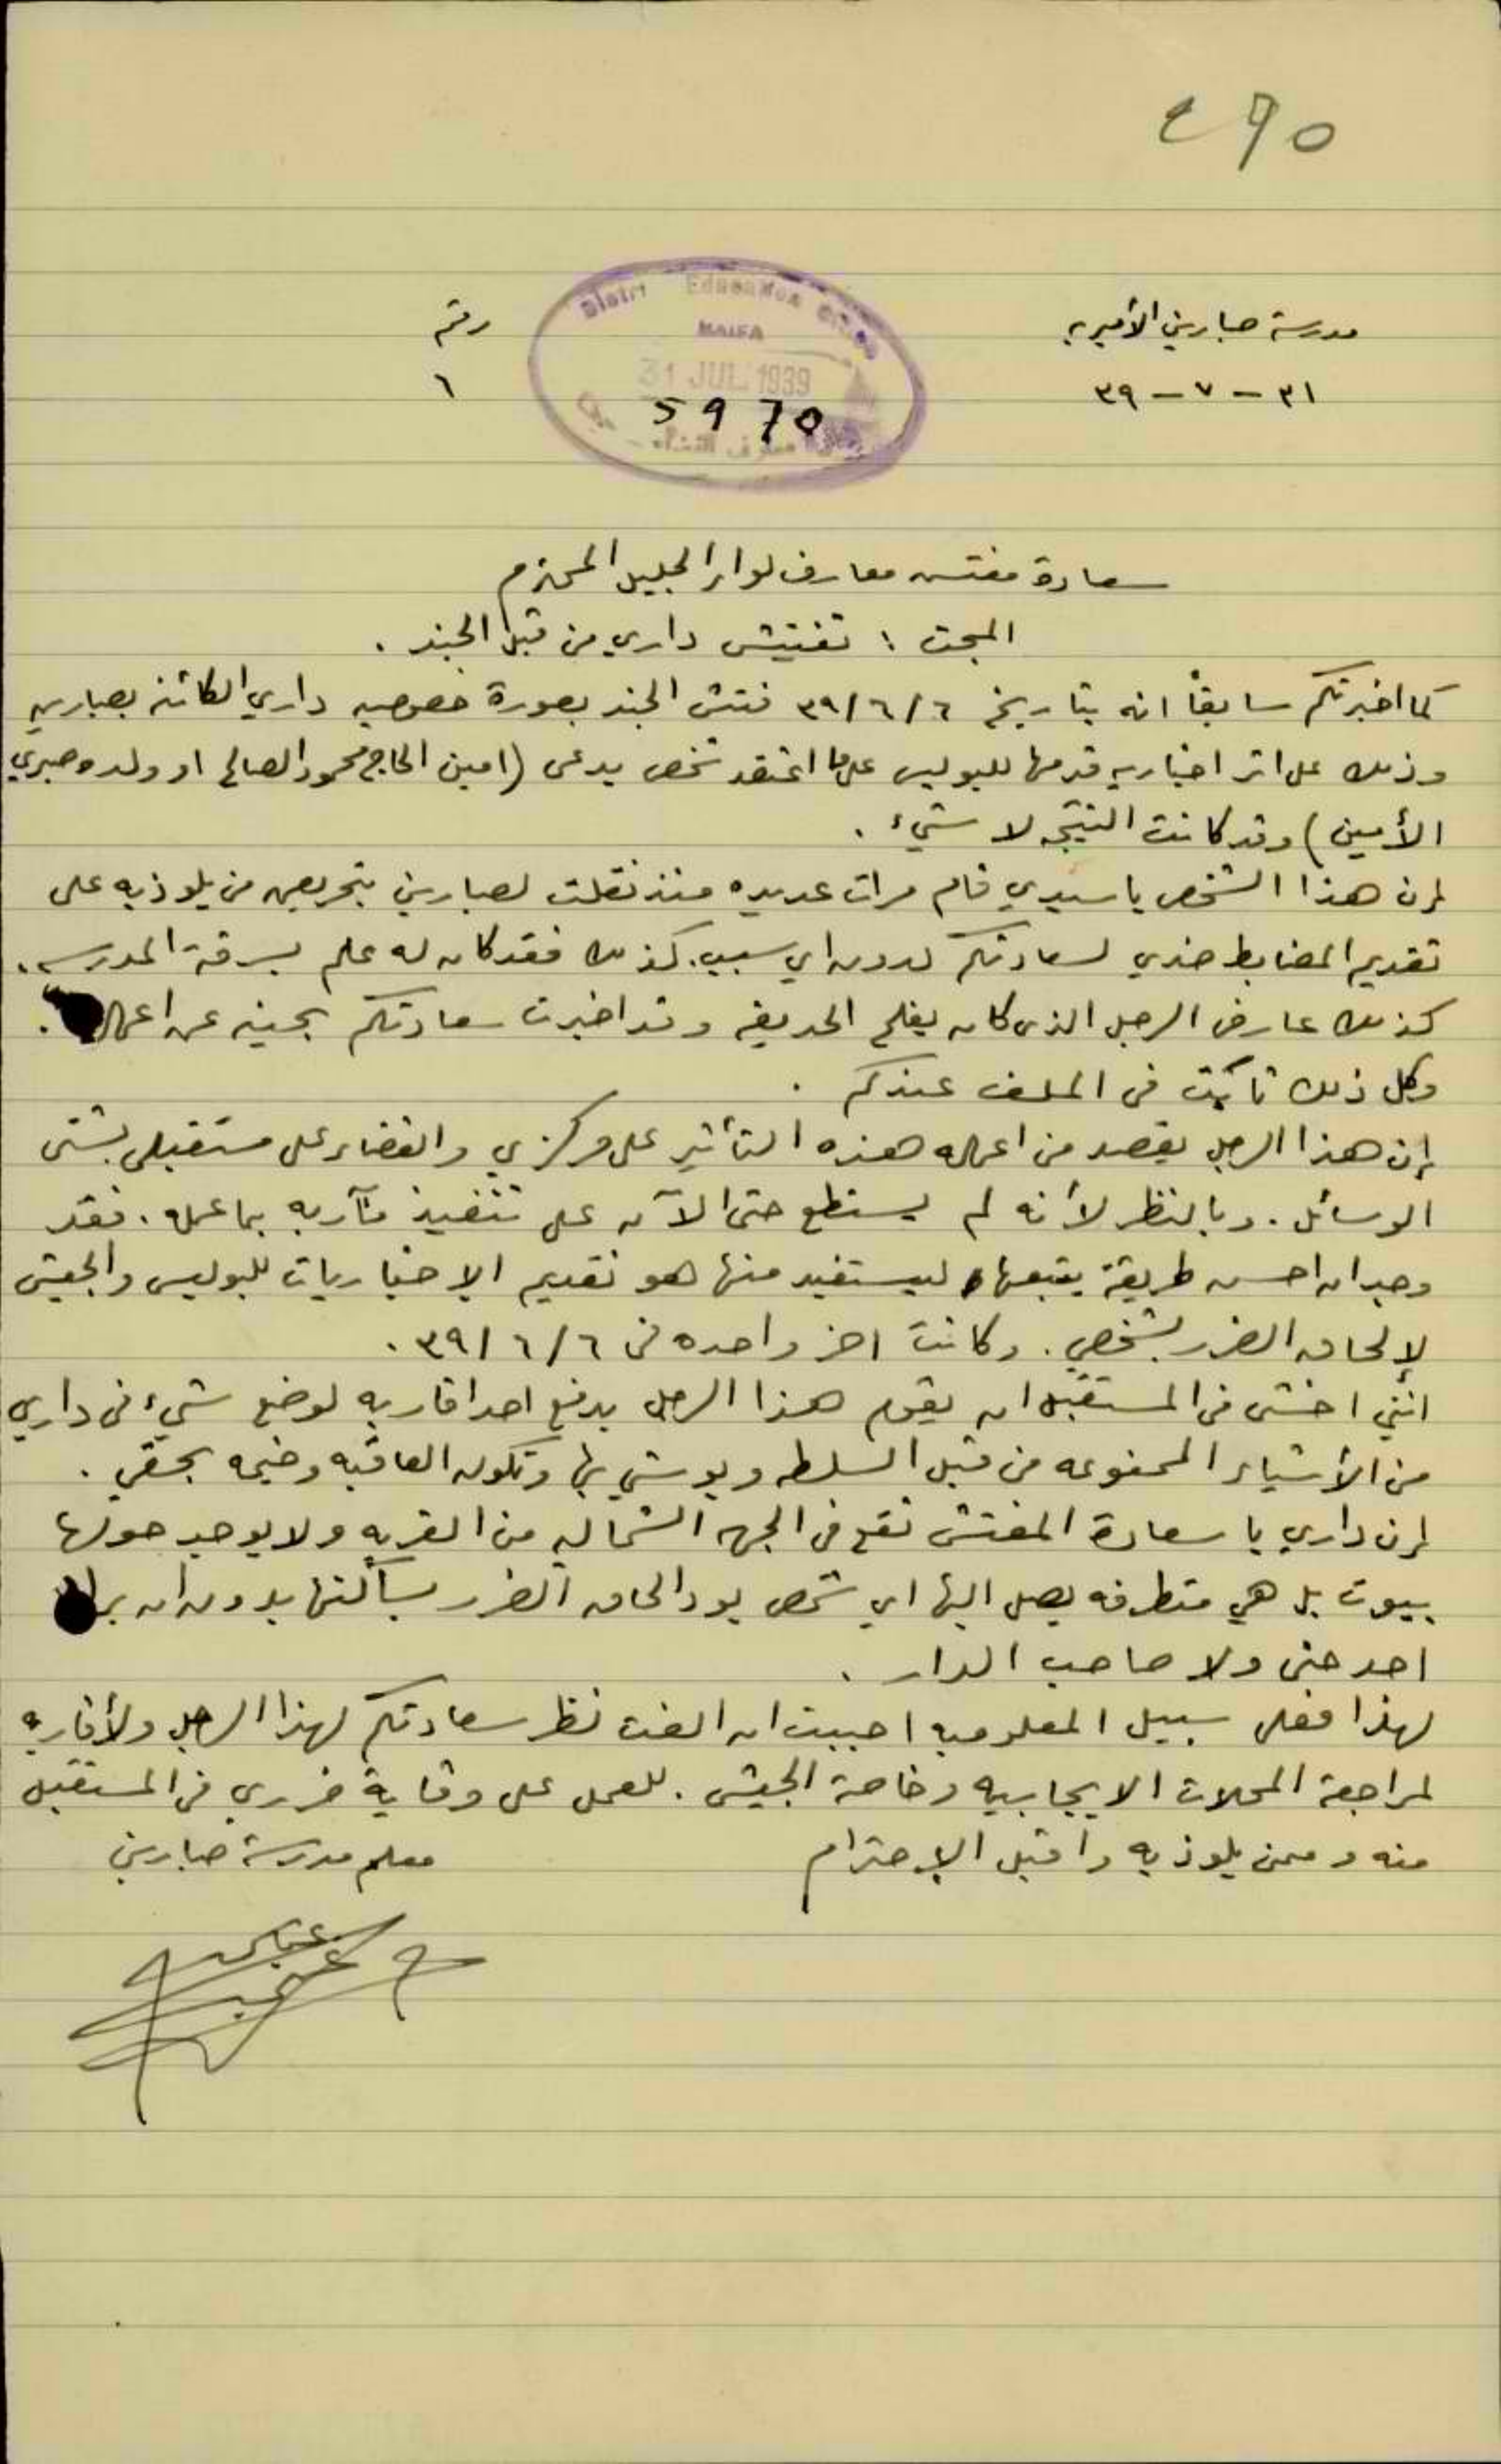 ٢٩٥
مدرسة صبارين الأميريه
رقم
٣١ - ٧ - ٣٩
٦
District Education Office
HAIFA
31 JUL 1939
5970
سعادة مفتش معارف لواء الجليل المحترم
المبحث : تفتيش داري من قبل الجند .
كما اخبرتكم سابقاً انه بتاريخ ٣٩/٦/٦ فتش الجند بصورة خصوصيه داري الكائنه بصبارين
وذلك على اثر اخباريه قدمها للبوليس على ما اعتقد شخص يدعى (امين الحاج محمود الصالح او ولده صبري
الأمين) وقد كانت النتيجه لا شيء .
إن هذا الشخص يا سيدي قام مرات عديده منذ نقلت لصبارين بتحريض من يلوذ به على
تقديم المضابط ضدي لسعادتكم بدون اي سبب. كذلك فقد كان له علم بسرقة المدرسه .
كذلك عارض الرجل الذي كان يفلح الحديقه وقد اخبرت سعادتكم بحينه عن اعماله .
وكل ذلك ثابت في الملف عندكم .
إن هذا الرجل يقصد من اعماله هذه التأثير على مركزي والقضاء على مستقبلي بشتى
الوسائل . وبالنظر لأنه لم يستطع حتى الآن على تنفيذ مآربه بما عمله . فقد
وجد ان احسن طريقة يتبعها ليستفيد منها هو تقديم الإخباريات للبوليس والجيش
لإلحاق الضرر بشخصي . وكانت اخر واحده في ٣٩/٦/٦ .
انني اخشى في المستقبل ان يقوم هذا الرجل بدفع احد اقاربه لوضع شيء في داري
من الأشياء الممنوعه من قبل السلطه ويوشي بها وتكون العاقبه وخيمه بحقي .
إن داري يا سعادة المفتش تقع في الجهه الشماليه من القريه ولا يوجد حولها
بيوت بل هي متطرفه يصل اليها اي شخص يود الحاق الضرر بساكنها بدون ان يراه
احد حتى ولا صاحب الدار .
لهذا فعلى سبيل المعلوميه احببت ان الفت نظر سعادتكم لهذا الرجل ولأقاربه
لمراجعة المحلات الايجابيه وخاصة الجيش . للعمل على وقاية ضرري في المستقبل
منه وممن يلوذ به واقبل الإحترام
معلم مدرسة صبارين